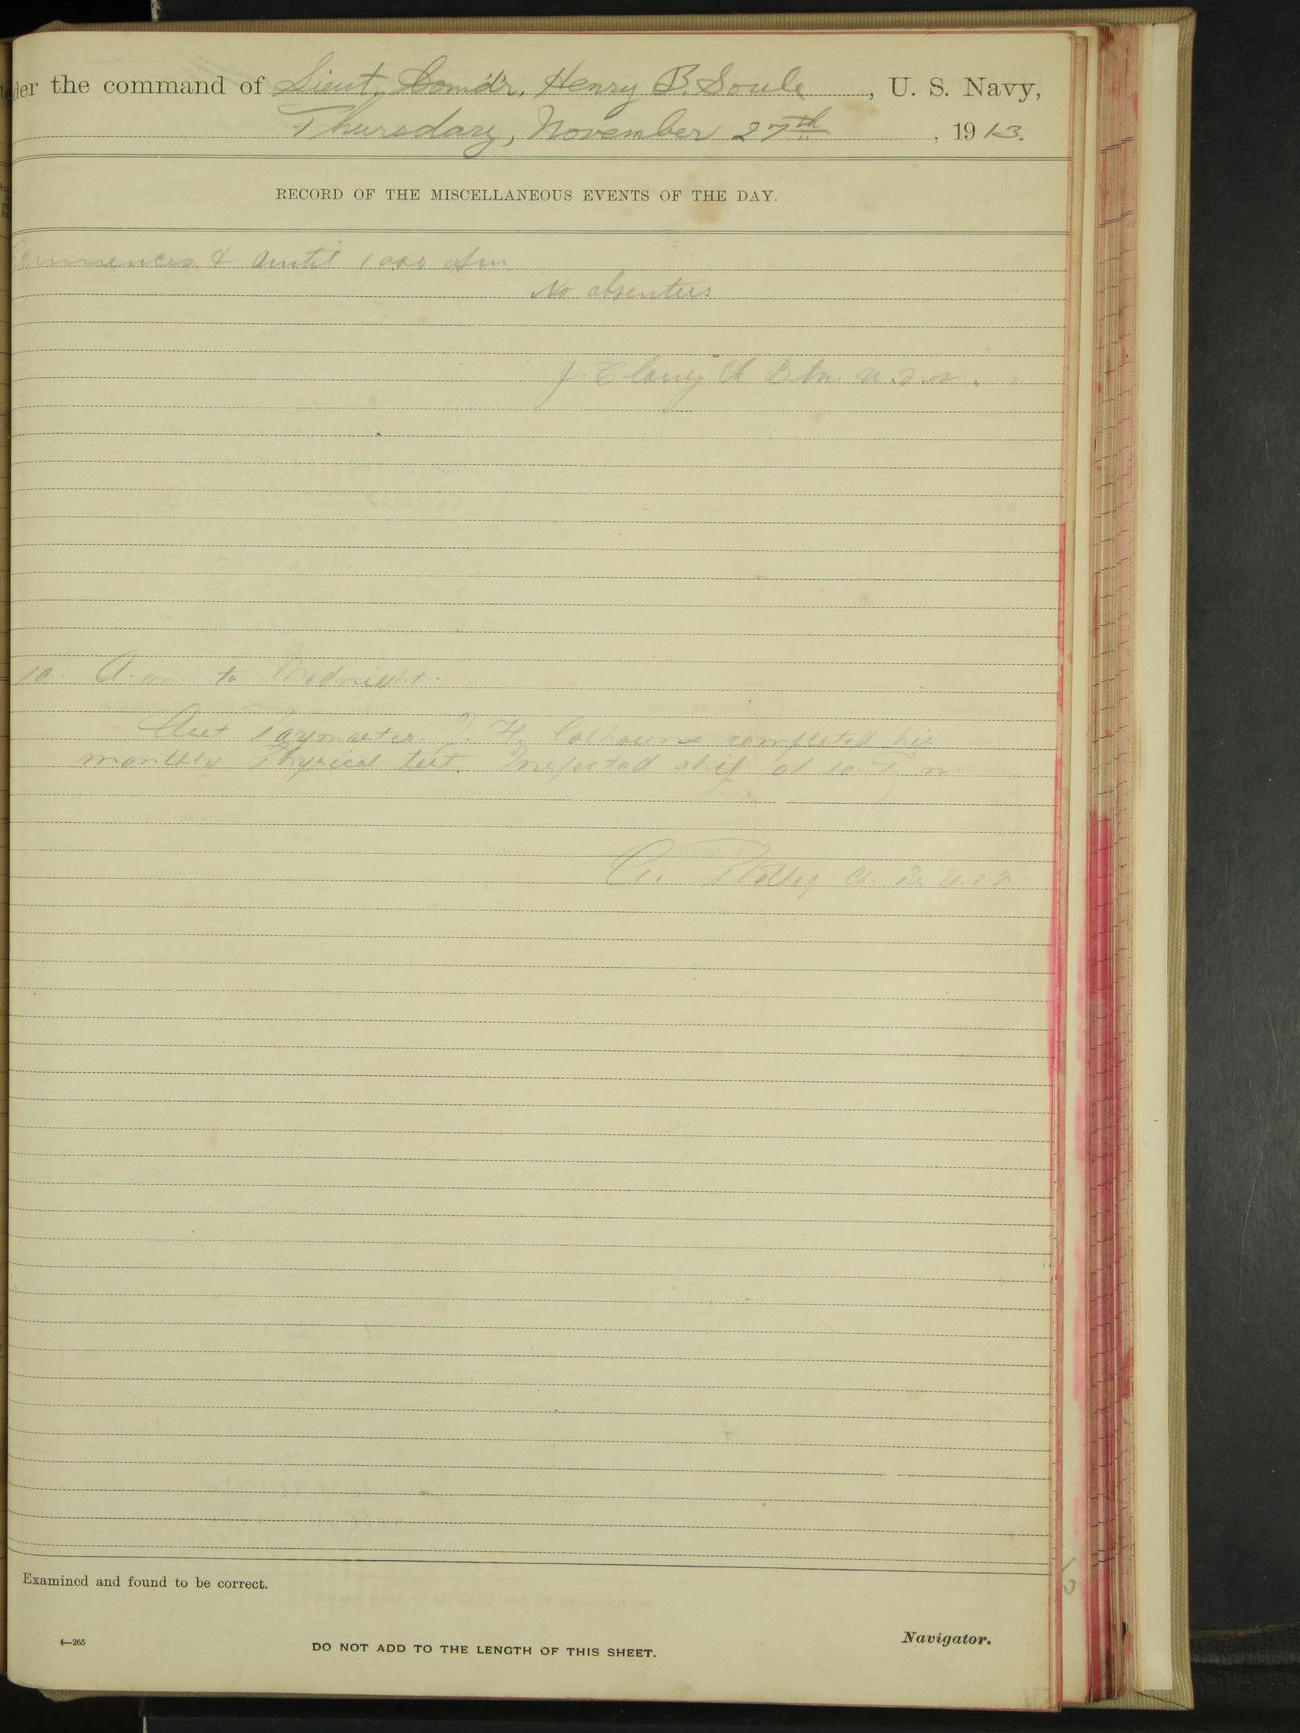 der the command of Lieut. Comdr. Henry B. Soule, U. S. Navy,
Thursday, November 27th, 1913.
RECORD OF THE MISCELLANEOUS EVENTS OF THE DAY.
Commences & until 1000 Am
No absentees
J. Clancy Ch Btn. U.S.N.
10. A.m. to Midnight.
Asst Paymaster. J. H. Colhoun completed his
monthly Physical test. Inspected ship at 10. P. m
A. U.S.N.
Examined and found to be correct.
4—265
DO NOT ADD TO THE LENGTH OF THIS SHEET.
Navigator.